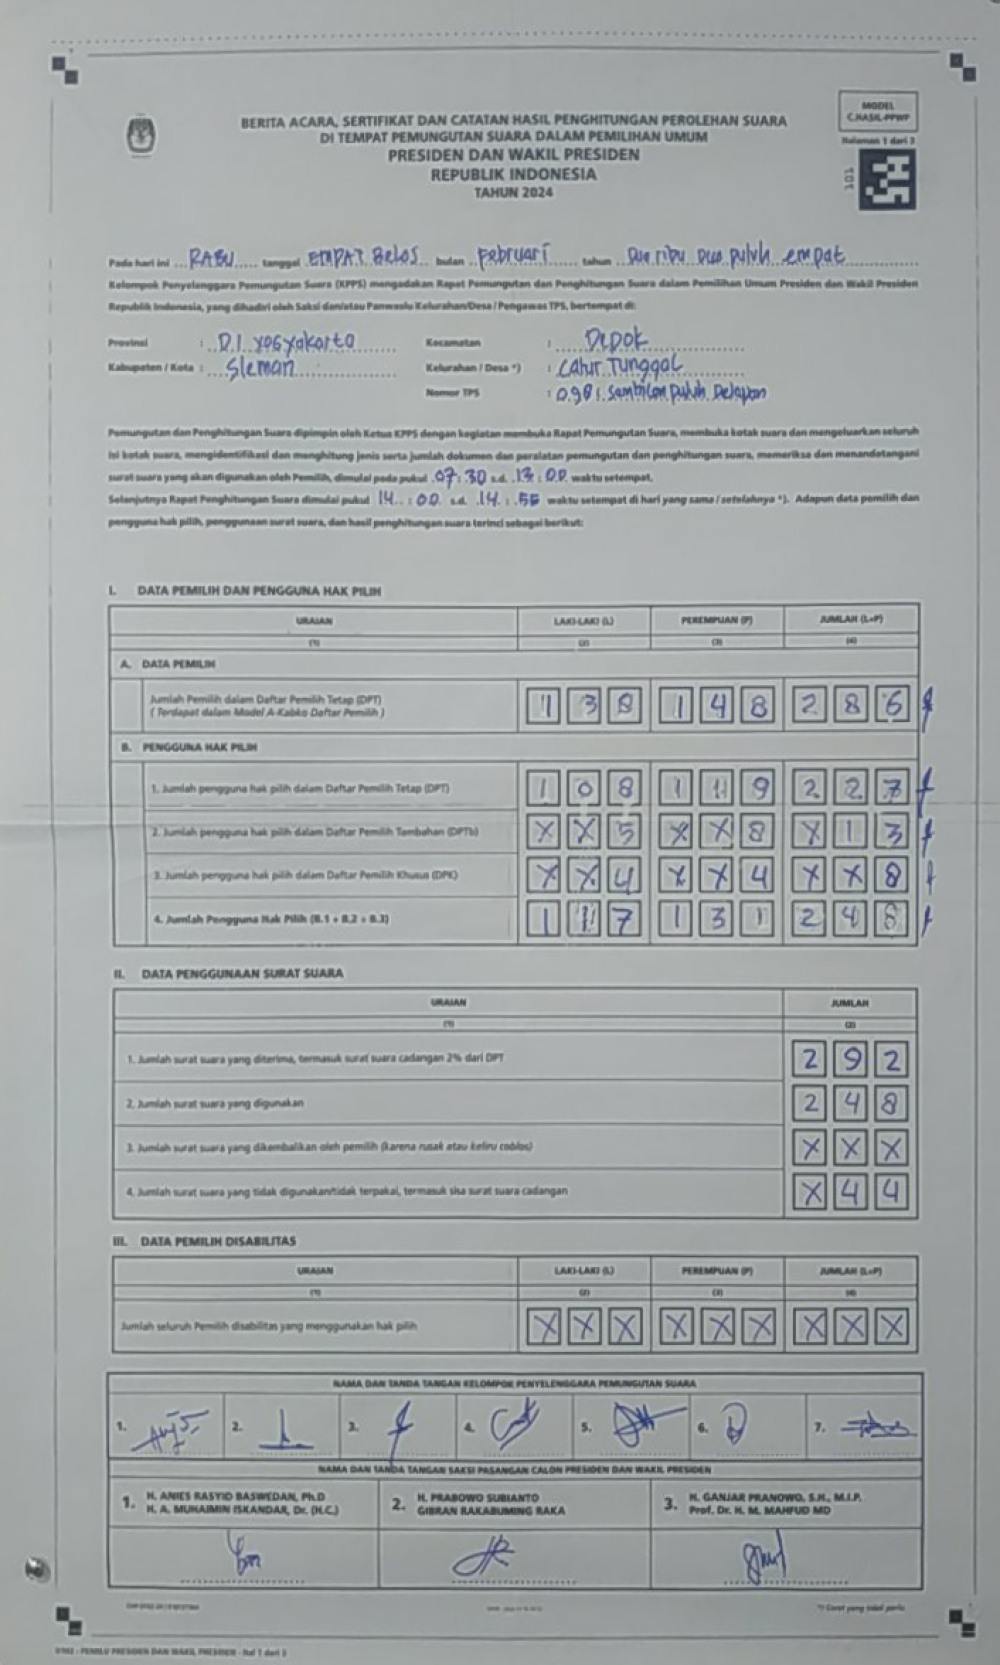 MODEL
C.HASIL-PPWP
Halaman 1 dari 3
101
BERITA ACARA, SERTIFIKAT DAN CATATAN HASIL PENGHITUNGAN PEROLEHAN SUARA
DI TEMPAT PEMUNGUTAN SUARA DALAM PEMILIHAN UMUM
PRESIDEN DAN WAKIL PRESIDEN
REPUBLIK INDONESIA
TAHUN 2024
Pada hari ini RABU tanggal EMPAT Belas bulan Februari tahun Dua ribu Dua puluh empat
Kelompok Penyelenggara Pemungutan Suara (KPPS) mengadakan Rapat Pemungutan dan Penghitungan Suara dalam Pemilihan Umum Presiden dan Wakil Presiden
Republik Indonesia, yang dihadiri oleh Saksi dan/atau Panwaslu Kelurahan/Desa / Pengawas TPS, bertempat di:
Provinsi : D.I. Yogyakarta Kecamatan : Depok
Kabupaten / Kota : Sleman Kelurahan / Desa *) : Catur Tunggal
Nomor TPS : 098 (Sembilan Puluh Delapan
Pemungutan dan Penghitungan Suara dipimpin oleh Ketua KPPS dengan kegiatan membuka Rapat Pemungutan Suara, membuka kotak suara dan mengeluarkan seluruh
isi kotak suara, mengidentifikasi dan menghitung jenis serta jumlah dokumen dan peralatan pemungutan dan penghitungan suara, memeriksa dan menandatangani
surat suara yang akan digunakan oleh Pemilih, dimulai pada pukul 07:30 s.d. 13:00 waktu setempat.
Selanjutnya Rapat Penghitungan Suara dimulai pukul 14:00 s.d. 14:55 waktu setempat di hari yang sama / setelahnya *). Adapun data pemilih dan
pengguna hak pilih, penggunaan surat suara, dan hasil penghitungan suara terinci sebagai berikut:
I. DATA PEMILIH DAN PENGGUNA HAK PILIH
URAIAN LAKI-LAKI (L) PEREMPUAN (P) JUMLAH (L+P)
(1) (2) (3) (4)
A. DATA PEMILIH
Jumlah Pemilih dalam Daftar Pemilih Tetap (DPT)
( Terdapat dalam Model A-Kabko Daftar Pemilih ) 1 3 8 1 4 8 2 8 6
B. PENGGUNA HAK PILIH
1. Jumlah pengguna hak pilih dalam Daftar Pemilih Tetap (DPT) 1 0 8 1 1 9 2 2 7
2. Jumlah pengguna hak pilih dalam Daftar Pemilih Tambahan (DPTb) X X 5 X X 8 X 1 3
3. Jumlah pengguna hak pilih dalam Daftar Pemilih Khusus (DPK) X X 4 X X 4 X X 8
4. Jumlah Pengguna Hak Pilih (B.1 + B.2 + B.3) 1 1 7 1 3 1 2 4 8
II. DATA PENGGUNAAN SURAT SUARA
URAIAN JUMLAH
(1) (2)
1. Jumlah surat suara yang diterima, termasuk surat suara cadangan 2% dari DPT 2 9 2
2. Jumlah surat suara yang digunakan 2 4 8
3. Jumlah surat suara yang dikembalikan oleh pemilih (karena rusak atau keliru coblos) X X X
4. Jumlah surat suara yang tidak digunakan/tidak terpakai, termasuk sisa surat suara cadangan X 4 4
III. DATA PEMILIH DISABILITAS
URAIAN LAKI-LAKI (L) PEREMPUAN (P) JUMLAH (L+P)
(1) (2) (3) (4)
Jumlah seluruh Pemilih disabilitas yang menggunakan hak pilih X X X X X X X X X
NAMA DAN TANDA TANGAN KELOMPOK PENYELENGGARA PEMUNGUTAN SUARA
1. 2. 3. 4. 5. 6. 7.
NAMA DAN TANDA TANGAN SAKSI PASANGAN CALON PRESIDEN DAN WAKIL PRESIDEN
1. H. ANIES RASYID BASWEDAN, Ph.D
H. A. MUHAIMIN ISKANDAR, Dr. (H.C.)
2. H. PRABOWO SUBIANTO
GIBRAN RAKABUMING RAKA
3. H. GANJAR PRANOWO, S.H., M.I.P.
Prof. Dr. H. M. MAHFUD MD
*) Coret yang tidak perlu
PEMILU PRESIDEN DAN WAKIL PRESIDEN - Hal 1 dari 3